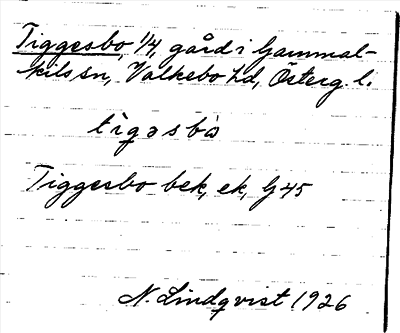 Tiggesbo, 1/4, gård i Gammal-
kils sn, Valkebo hd, Österg. l.
tìgəsbò
Tiggesbo bek, ek, G 45
N. Lindqvist 1926